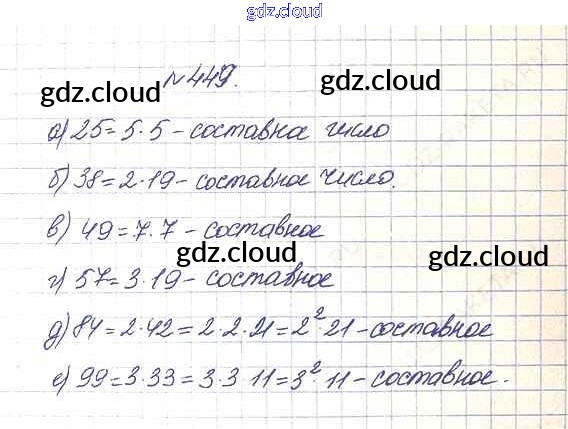 gdz.cloud
№449.
gdz.cloud
gdz.cloud
а) 25=5·5 - составное число
б) 38=2·19 - составное число.
в) 49=7·7 - составное
gdz.cloud
gdz.cloud
г) 57=3·19 - составное
д) 84=2·42=2·2·21=2²·21 - составное
е) 99=3·33=3·3·11=3²·11 - составное.